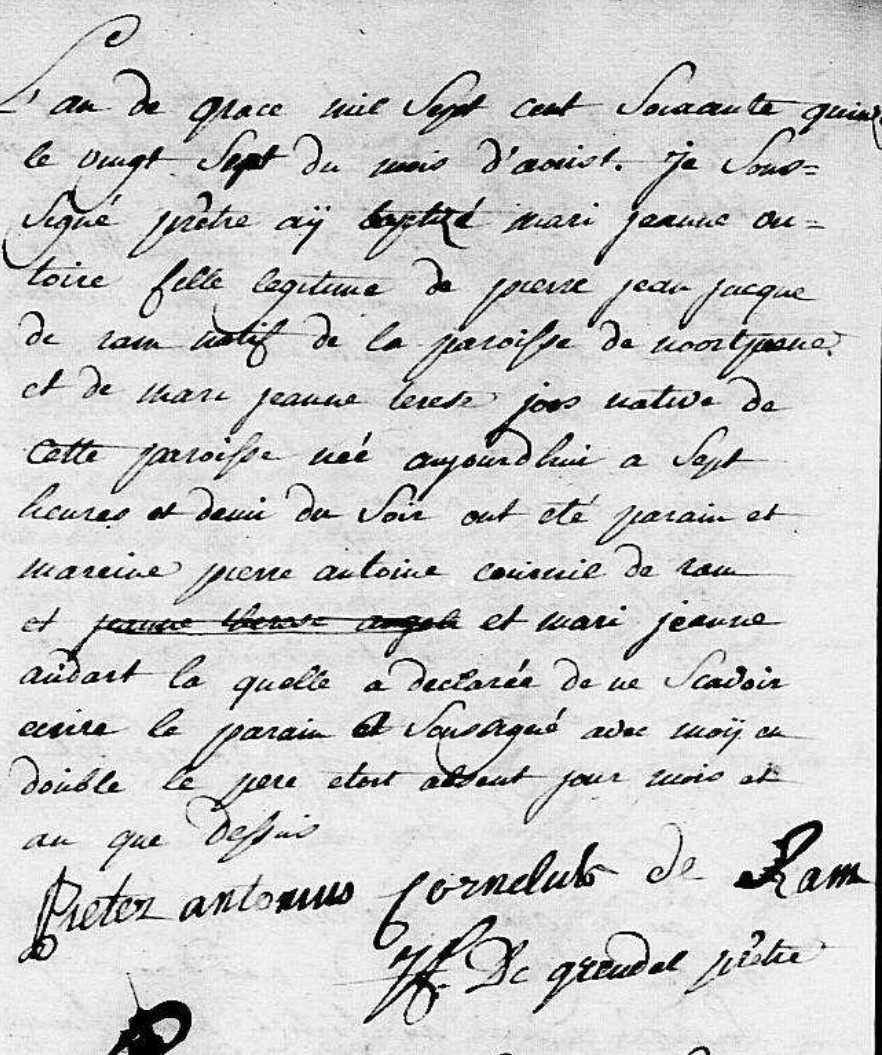 L'an de grace mil Sept cent Soixante quinze
le vingt Sept du mois d'aoust. Je Sous=
Signé prêtre aÿ baptizé mari jeanne vic=
toire fille legitime de pierre jean jacque
de ram natif de la paroisse de noortpeene
et de mari jeanne terese joos native de
cette paroisse née aujourdhui a Sept
heures et demi du Soir ont eté parain et
mareine pierre antoine corneil de ram
et jeanne therese angele et mari jeanne
audart la quelle a declarée de ne Scavoir
ecrire le parain et Soussigné avec moÿ en
double le pere etoit absent jour mois et
an que dessus
Pieter antonius Cornelus de Ram
De grendel prêtre